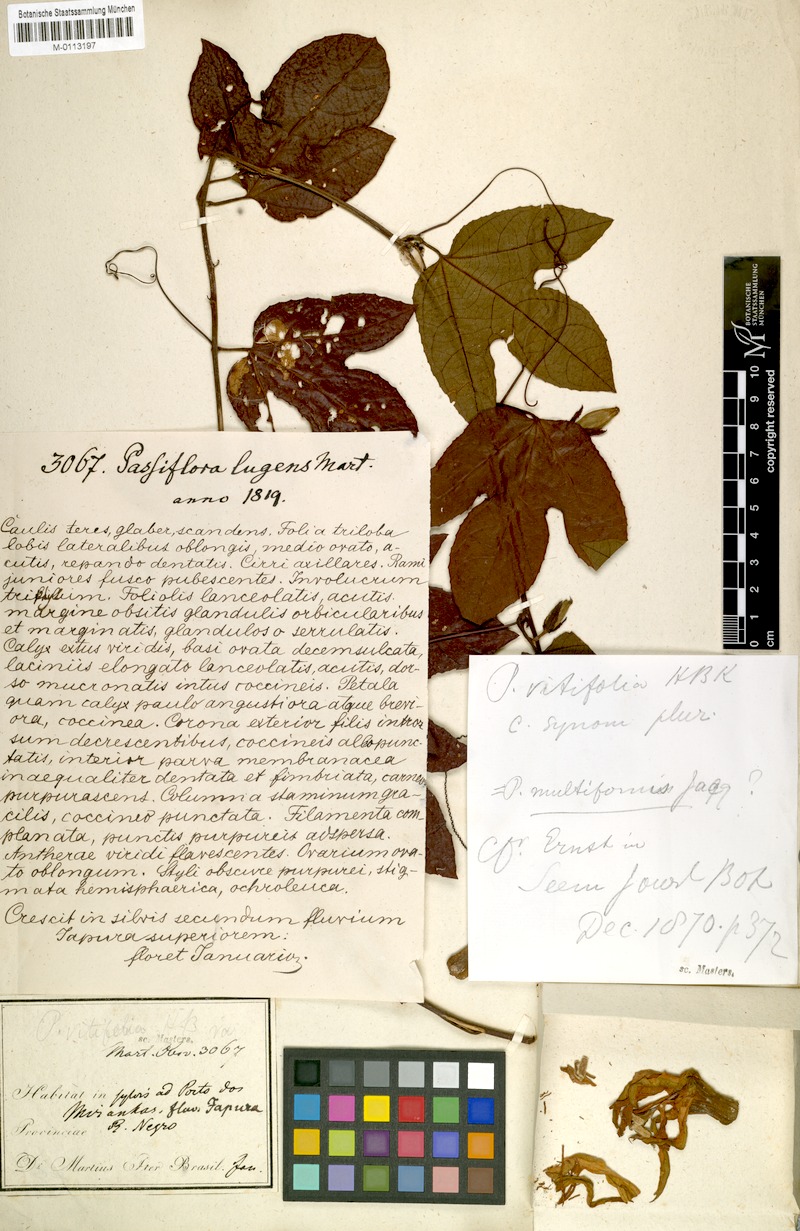 Botanische Staatssammlung München
M-0113197
3067. Passiflora lugens Mart.
anno 1819.
Caulis teres, glaber, scandens. Folia triloba
lobis lateralibus oblongis, medio ovato, a-
cutis, repando dentatis. Cirri axillares. Rami
juniores fusco pubescentes. Involucrum
Foliolis lanceolatis, acutis
margine obsitis glandulis orbicularibus
et marginatis, glanduloso serrulatis.
Calyx extus viridis, basi ovata decemsulcata,
laciniis elongato lanceolatis, acutis, dor-
so mucronatis intus coccineis. Petala
quam calyx paulo angustiora atque brevi-
ora, coccinea. Corona exterior filis intror
sum decrescentibus, coccineis albopunc-
tatis, interior parva membranacea
inaequaliter dentata et fimbriata, carneo
purpurascens. Columna staminum gra-
cilis, coccineo punctata. Filamenta com
planata, punctis purpureis adspersa.
Antherae viridi flavescentes. Ovarium ova-
to oblongum. Styli obscure purpurei, stig-
mata hemisphaerica, ochroleuca.
Crescit in silvis secundum fluvium
Iapura superiorem:
floret Ianuario.
P. vitifolia HBK
c. synom plur.
=P. multiformis Jacq ?
Cfr. Ernst in
Seem Journ Bot
Dec. 1870. p 372
sc. Masters.
P. vitifolia HB
sc. Masters.
Mart. Obs. 3067
Habitat in sylvis ad Porto dos
Miranhas, fluv. Iapura
Provinciae R. Negro
De Martius Iter Brasil. Jan.
BOTANISCHE
STAATSSAMMLUNG
MÜNCHEN
0 1 2 3 4 5 6 7 8 9 10
cm
copyright reserved